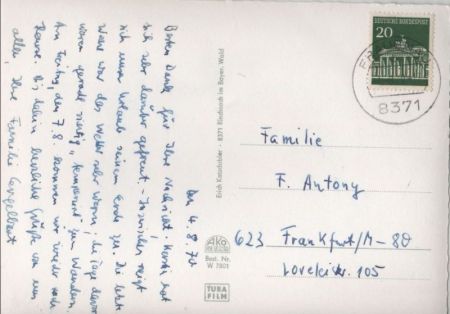 Den 4.8.70
Besten Dank für Ihre Nachricht. hat
sich sehr darüber gefreut. - Inzwischen neigt
sich unser Urlaub seinem Ende zu. Die letzte
Woche war das Wetter sehr warm; die Tage davor
waren gerade richtig "temperiert" zum Wandern.
Am Freitag, den 7.8. kommen wir wieder nach
Hause. Bis dahin herzliche Grüße von uns
allen, Ihre Familie
20
DEUTSCHE BUNDESPOST
8371
Erich Katzschibler · 8371 Rinchnach im Bayer. Wald
Ako
Best. Nr.
W 7801
TURA
FILM
Familie
F. Antony
623 Frankfurt/M - 80
105